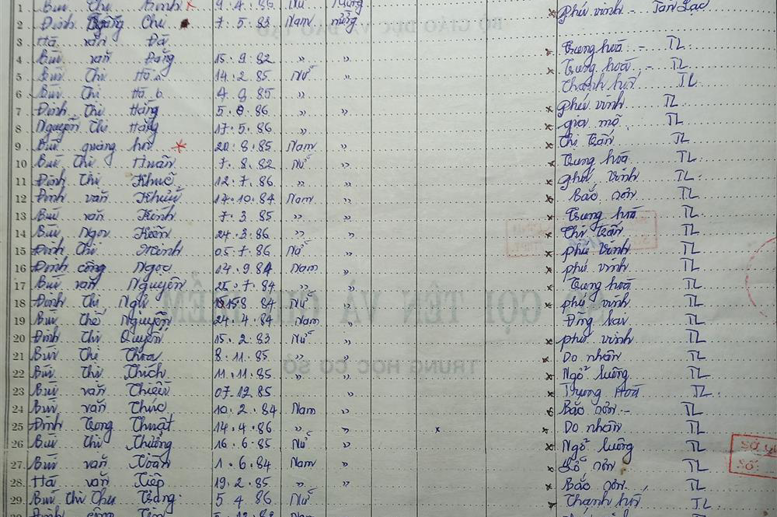 1 Bùi Thị Bình 9.4.85 Nữ Mường Phú vinh - Tân Lạc
2 Đinh Chí 7.5.83 Nam mường
3 Hà văn Trung hoà - TL
4 Bùi văn Đăng 15.9.82 " " Trung hoà - TL
5 Bùi Thị Hà.a 14.2.85 Nữ " Thanh hối TL
6 Bùi Thị Hà.b 4.9.85 " "
7 Đinh Thị Hằng 5.8.86 " " phú vinh TL
8 Nguyễn Thị Hằng 17.5.86 " " TL
9 Bùi quang 20.8.85 Nam " Thị Trấn TL
10 Bùi Thị Huấn 7.8.82 Nữ " Trung hoà TL
11 Đinh Thị Khuê 12.7.86 " " phú Vinh TL
12 Đinh văn 17.10.84 Nam " Bắc sơn TL
13 Bùi văn Kính 7.3.85 " " Trung hoà TL
14 Bùi Ngọc 24.3.86 " " Thị Trấn TL
15 Đinh Thị 05.7.86 Nữ " phú Vinh TL
16 Đinh công Ngọc 14.9.84 Nam " phú vinh TL
17 Bùi văn Nguyễn .7.84 " " Trung hoà TL
18 Đinh Thị 8.84 Nữ " phú vinh TL
19 Bùi Thế Nguyễn 24.4.84 Nam " TL
20 Đinh Thị Quyên 15.2.83 Nữ " phú vinh TL
21 Bùi Thị Thoa 8.11.85 " " Do nhân TL
22 Bùi Thị Thích 11.11.85 " " Ngổ luông TL
23 Bùi văn 07.12.85 " Trung Hoà TL
24 Bùi văn Thức 10.2.84 Nam " Bắc sơn - TL
25 Đinh Trọng Thuật 14.4.86 " " x Do nhân TL
26 Bùi Thị Thương 16.6.85 Nữ " Ngổ luông TL
27 Bùi văn Toàn 1.6.84 Nam " sơn TL
28 Hà văn Tiếp 19.2.85 " " Bắc sơn TL
29 Bùi Thị Thu Trang 5 4 86 Nữ Thanh hối TL
BỘ GIÁO DỤC VÀ ĐÀO TẠO
GỌI TÊN VÀ GHI ĐIỂM
TRUNG HỌC CƠ SỞ